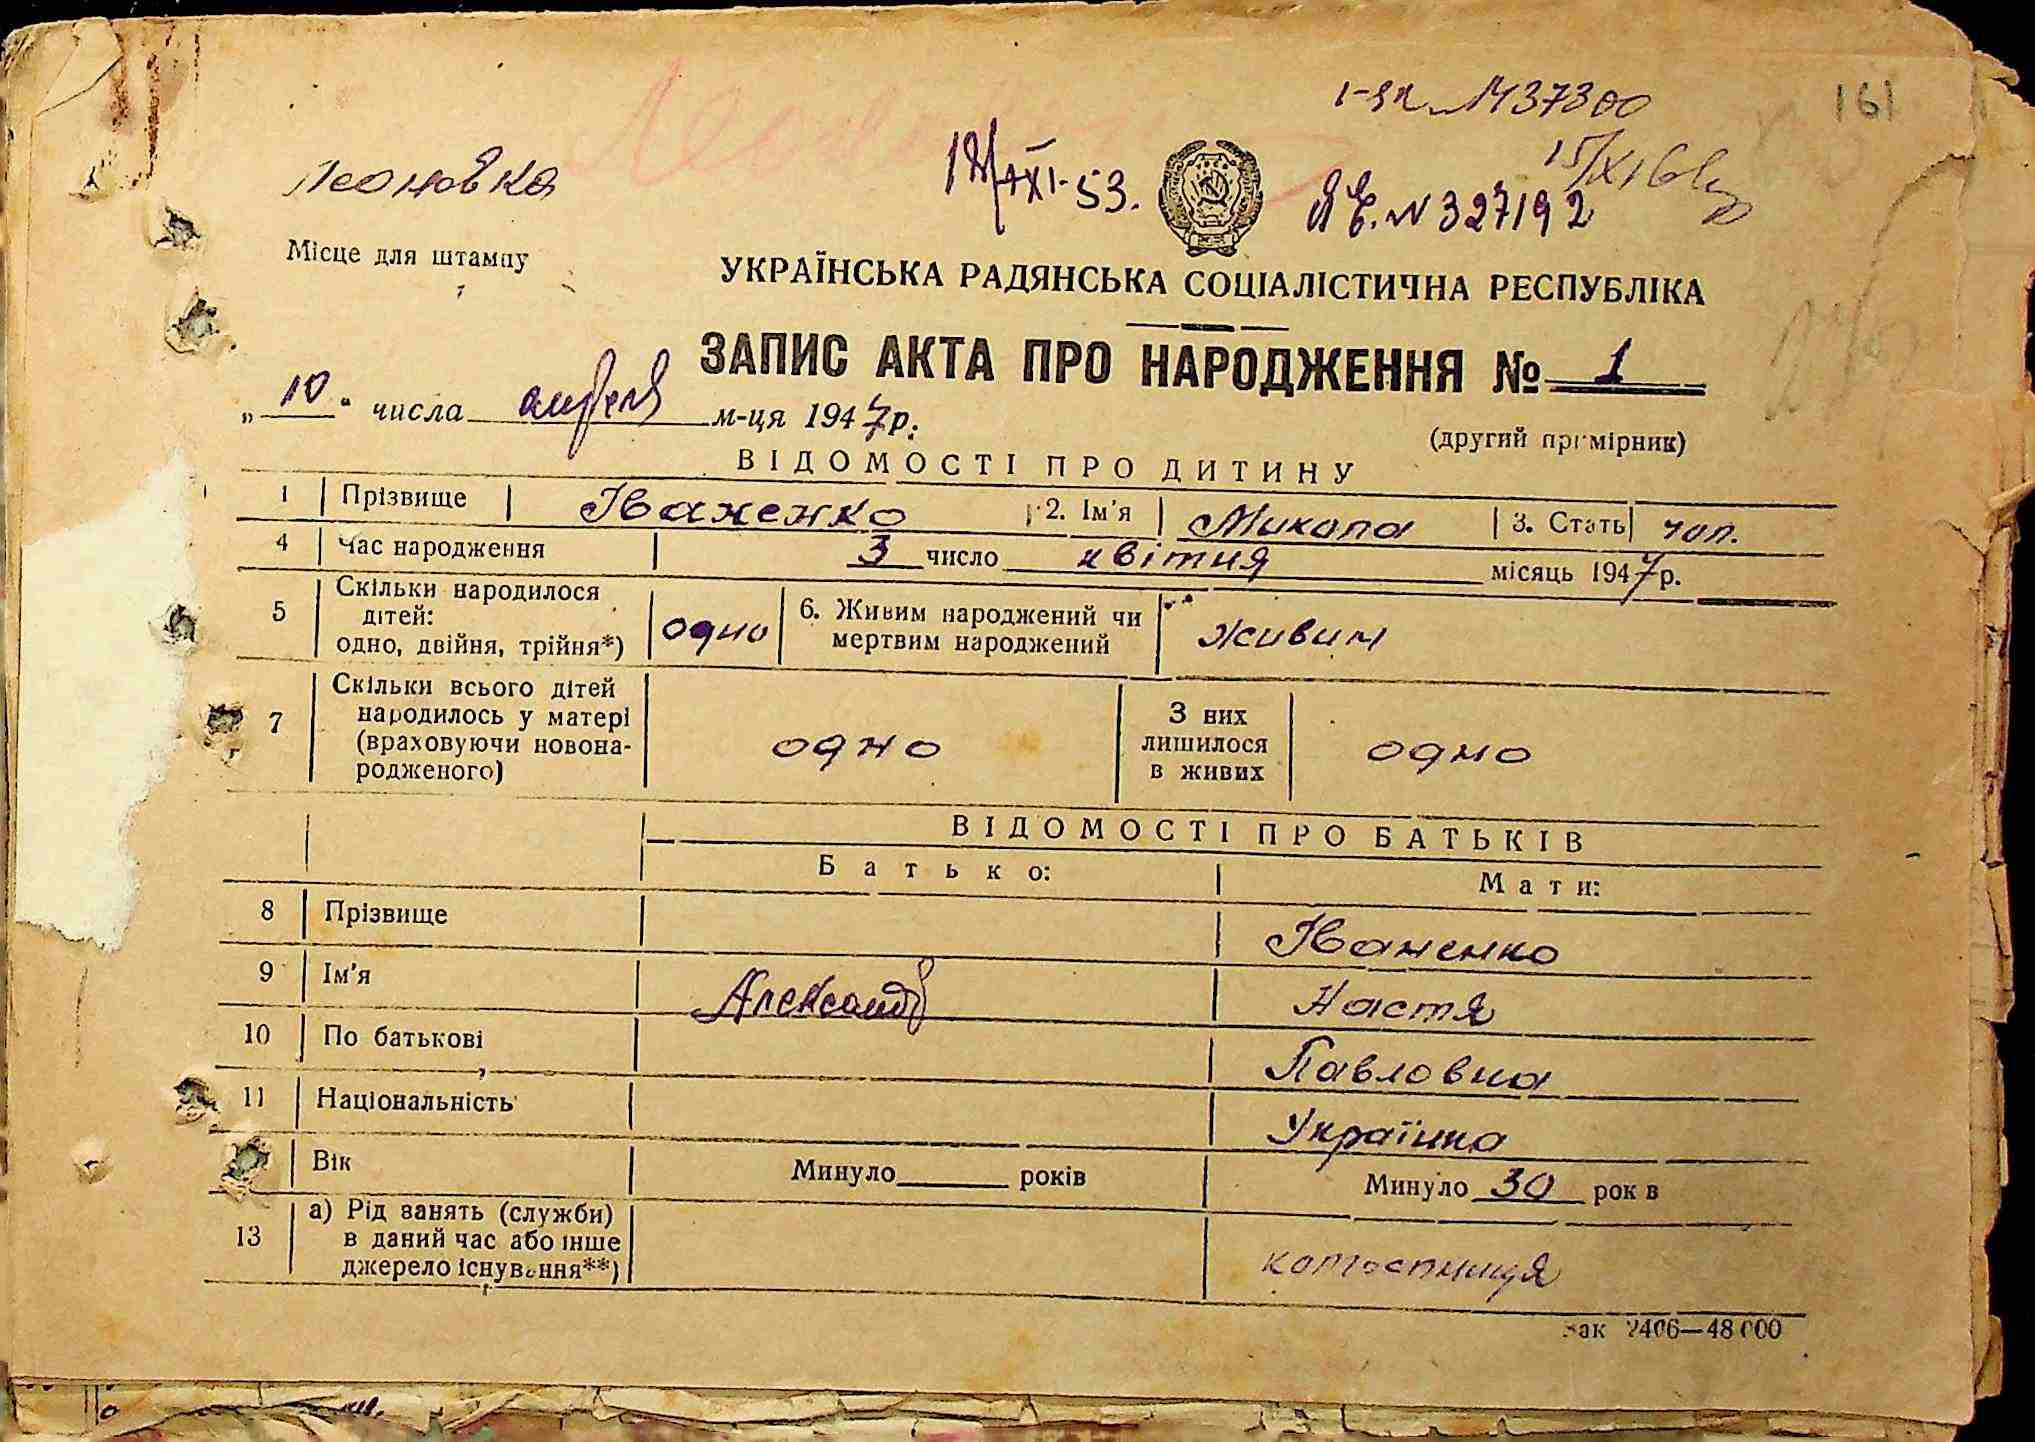 161
№ 37300
Леоновка
XI-53.
ЯЄ. № 327192
Місце для штампу
УКРАЇНСЬКА РАДЯНСЬКА СОЦІАЛІСТИЧНА РЕСПУБЛІКА
ЗАПИС АКТА ПРО НАРОДЖЕННЯ № 1
„10" числа апреля м-ця 1947 р.
(другий примірник)
ВІДОМОСТІ ПРО ДИТИНУ
1 Прізвище Іваненко 2. Ім'я Микола 3. Стать чол.
4 Час народження 3 число квітня місяць 1947 р.
5 Скільки народилося дітей: одно, двійня, трійня*) одно 6. Живим народжений чи мертвим народжений живим
7 Скільки всього дітей народилось у матері (враховуючи новонародженого) одно З них лишилося в живих одно
ВІДОМОСТІ ПРО БАТЬКІВ
Батько: Мати:
8 Прізвище Іваненко
9 Ім'я Александр Настя
10 По батькові Павловна
11 Національність Українка
Вік Минуло років Минуло 30 рок в
13 а) Рід занять (служби) в даний час або інше джерело існування**) колгоспниця
Зак 2406—48000